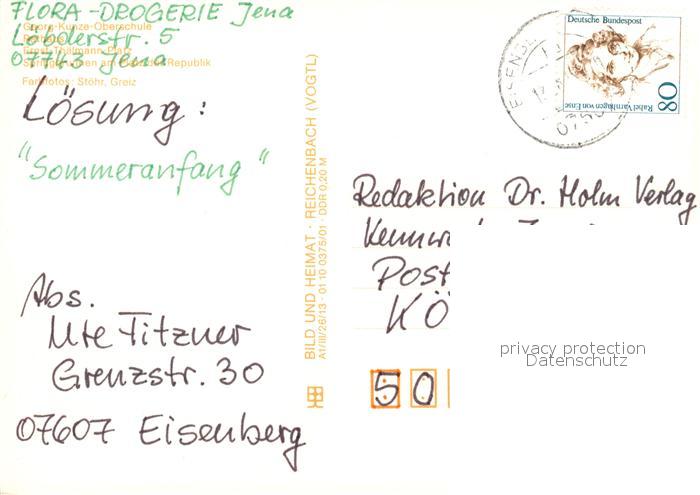 FLORA-DROGERIE Jena
Georg-Kunze-Oberschule
Löbderstr. 5
Ernst-Thälmann-Platz
07743 Jena
Republik
Farbfotos: Stöhr, Greiz
Lösung:
"Sommeranfang"
Abs.
Ute Titzner
Grenzstr. 30
07607 Eisenberg
BILD UND HEIMAT · REICHENBACH (VOGTL)
A1/III/26/13 · 01 10 0375/01 · DDR 0,20 M
Deutsche Bundespost
80
Rahel Varnhagen von Ense
EISENB
Redaktion Dr. Holm Verlag
Kennw
Post
KÖ
50
privacy protection
Datenschutz